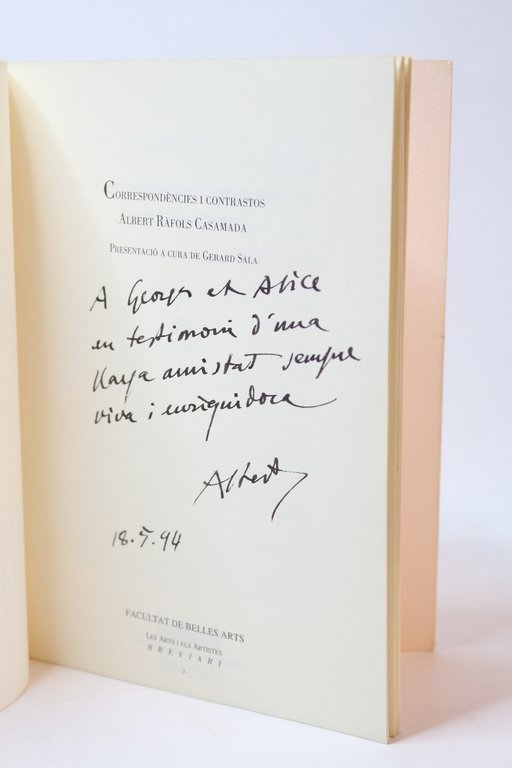 CORRESPONDÈNCIES I CONTRASTOS
ALBERT RÀFOLS CASAMADA
PRESENTACIÓ A CURA DE GERARD SALA
A Georges et Alice
en testimoni d'una
llarga amistat sempre
viva i enriquidora
Albert
18.5.94
FACULTAT DE BELLES ARTS
LES ARTS I ELS ARTISTES
BREVIARI
1